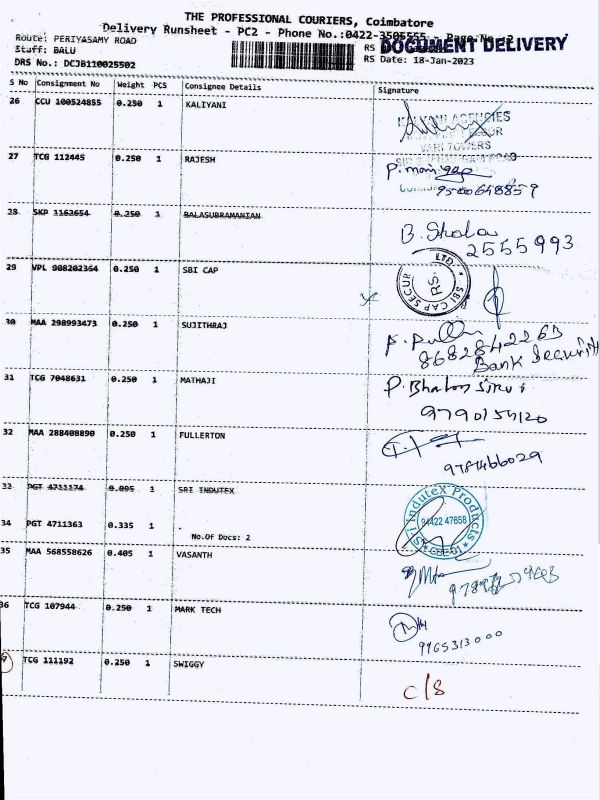 THE PROFESSIONAL COURIERS, Coimbatore
Delivery Runsheet - PC2 - Phone No.:0422-3505555 - Page No. 2
DOCUMENT DELIVERY
Route: PERIYASAMY ROAD
RS
Staff: BALU
RS Date: 18-Jan-2023
DRS No.: DCJB110025502
S No Consignment No Weight PCS Consignee Details Signature
26 CCU 100524855 0.250 1 KALIYANI
27 TCG 112445 0.250 1 RAJESH
9500648859
28 SKP 1163654 0.250 1 BALASUBRAMANIAN
2555993
29 VPL 908202364 0.250 1 SBI CAP
SBI CAP SECUR LTD. RS.
30 MAA 298993473 0.250 1 SUJITHRAJ
8682842263
Bank Security
31 TCG 7048631 0.250 1 MATHAJI
32 MAA 288408890 0.250 1 FULLERTON
33 PGT 4711174 0.095 1 SRI INDUTEX
Sri Indutex Products
94422 47658
34 PGT 4711363 0.335 1
No.Of Docs: 2
35 MAA 568558626 0.405 1 VASANTH
36 TCG 107944 0.250 1 MARK TECH
9965313000
TCG 111192 0.250 1 SWIGGY
c/s